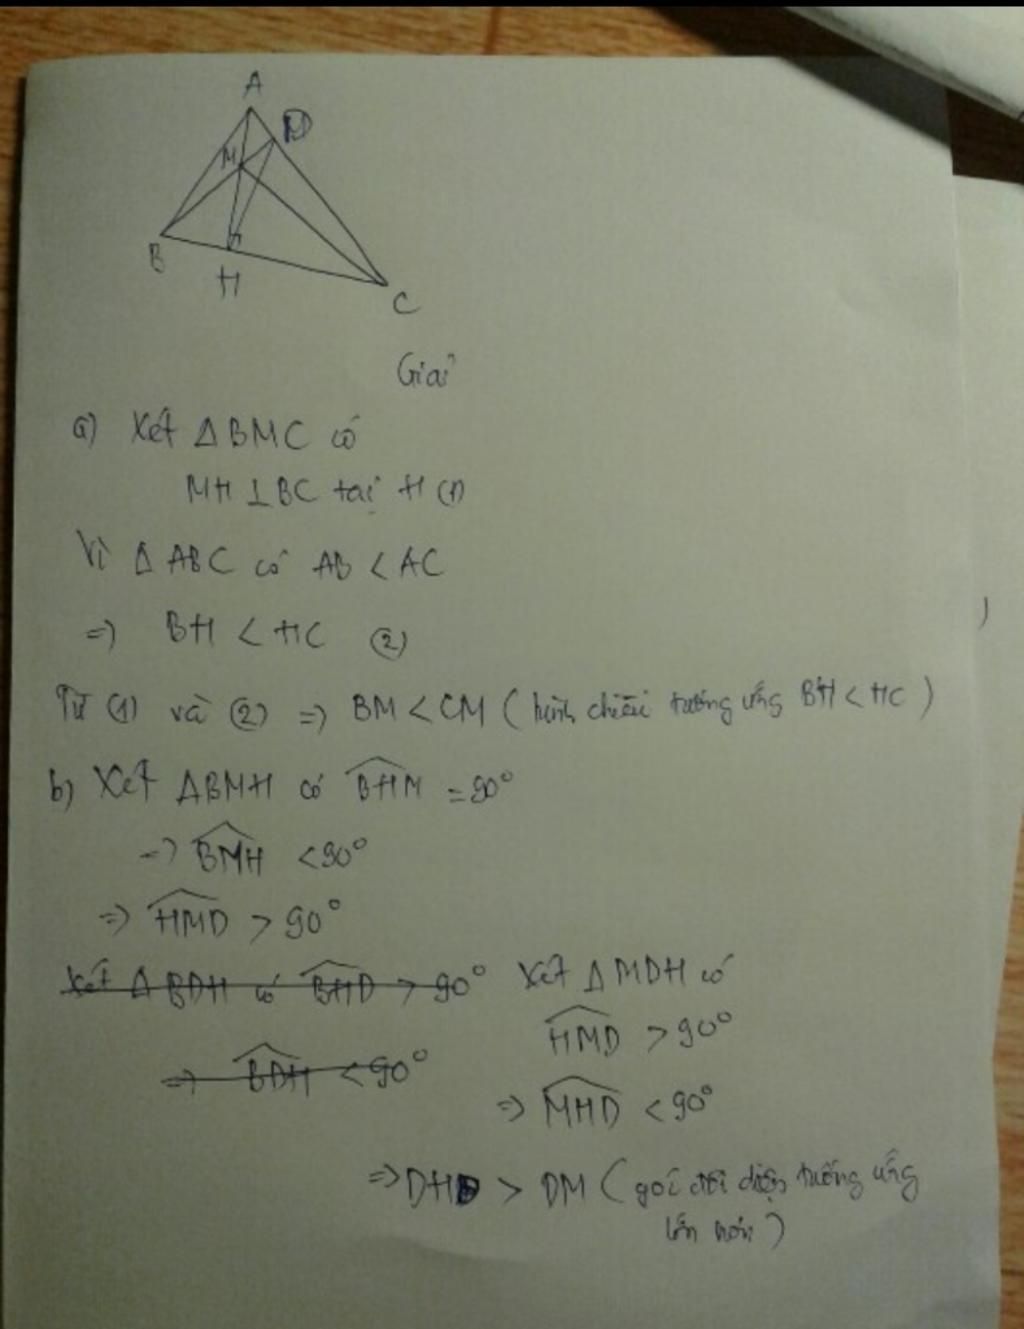 A
D
M
B
H
C
Giải
a) Xét ΔBMC có
MH ⊥ BC tại H (1)
Vì ΔABC có AB < AC
=> BH < HC (2)
Từ (1) và (2) => BM < CM (hình chiếu tương ứng BH < HC)
b) Xét ΔBMH có BHM = 90°
=> BMH < 90°
=> HMD > 90°
Xét ΔBDH có BHD > 90°
=> BDH < 90°
Xét ΔMDH có
HMD > 90°
=> MHD < 90°
=> DH > DM (góc đối diện tướng ứng
lớn hơn)